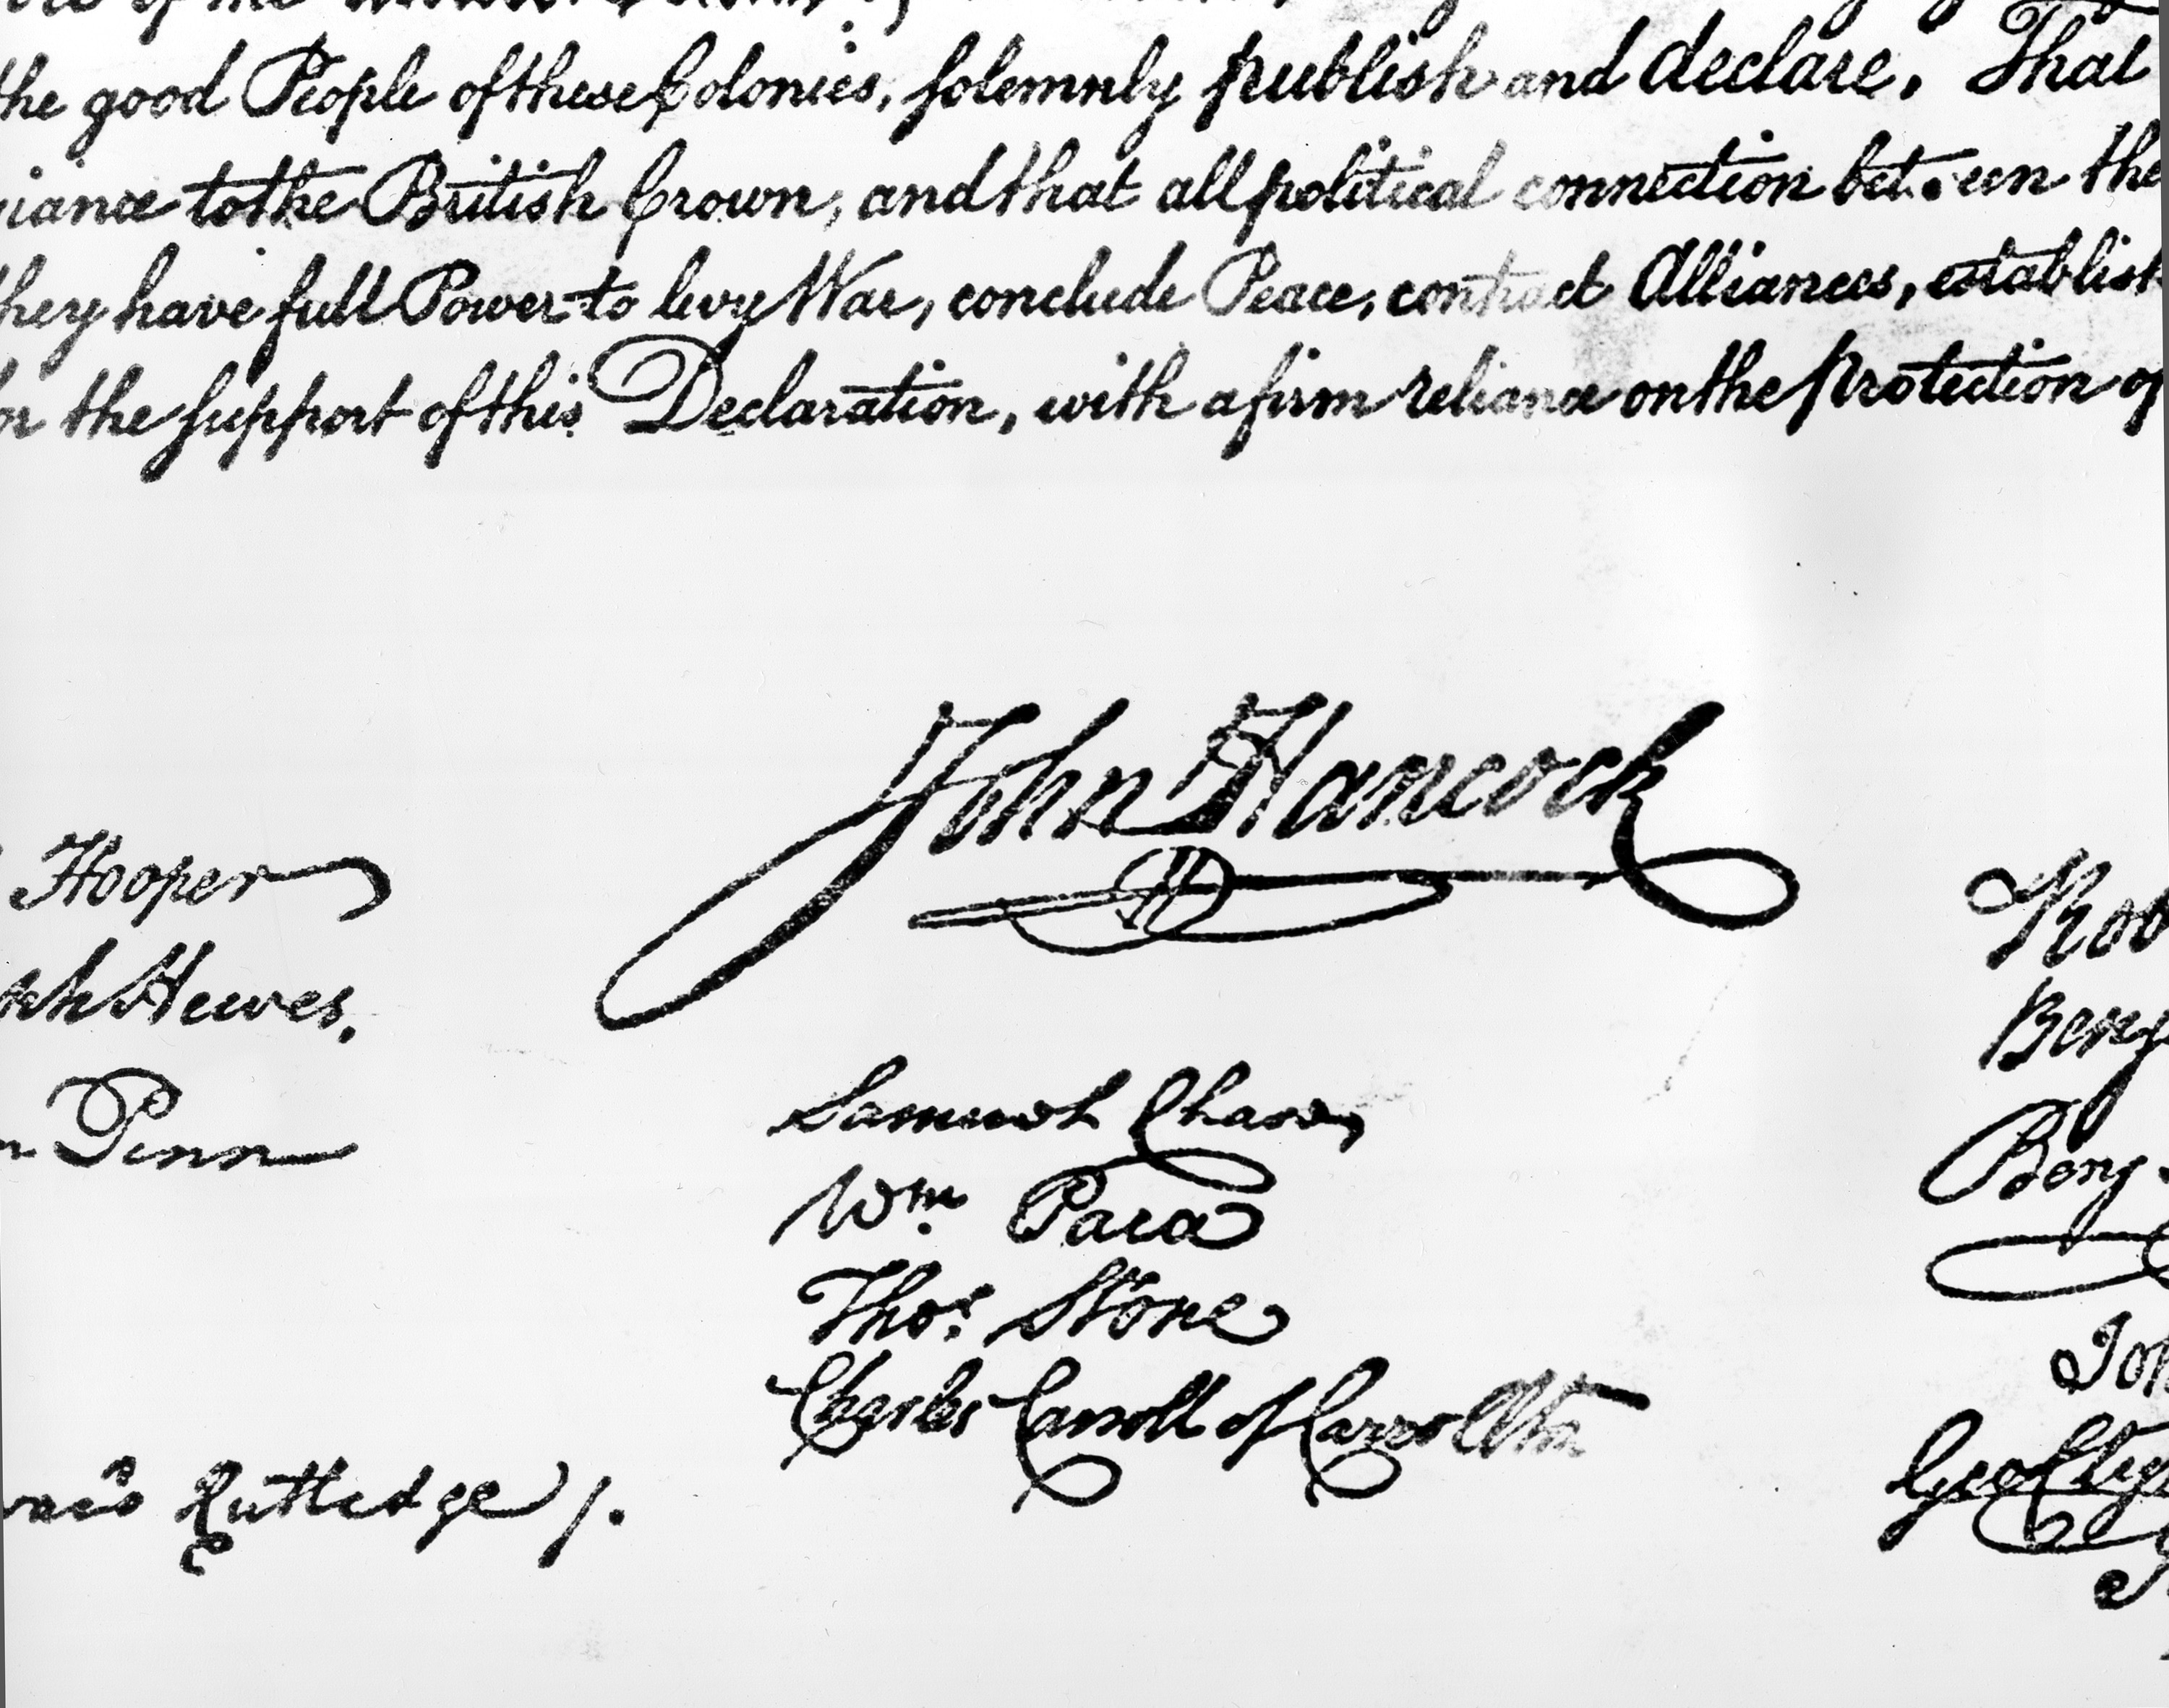 the good People of these Colonies, solemnly publish and declare, That
to the British Crown, and that all political connection between the
they have full Power to levy War, conclude Peace, contract Alliances, establish
for the support of this Declaration, with a firm reliance on the Protection of
John Hancock
Hooper
Hewes,
Penn
Samuel Chase
Wm. Paca
Thos. Stone
Charles Carroll of Carrollton
Rutledge /.
Rob
Benj
Benj
Joh
Geo Cly